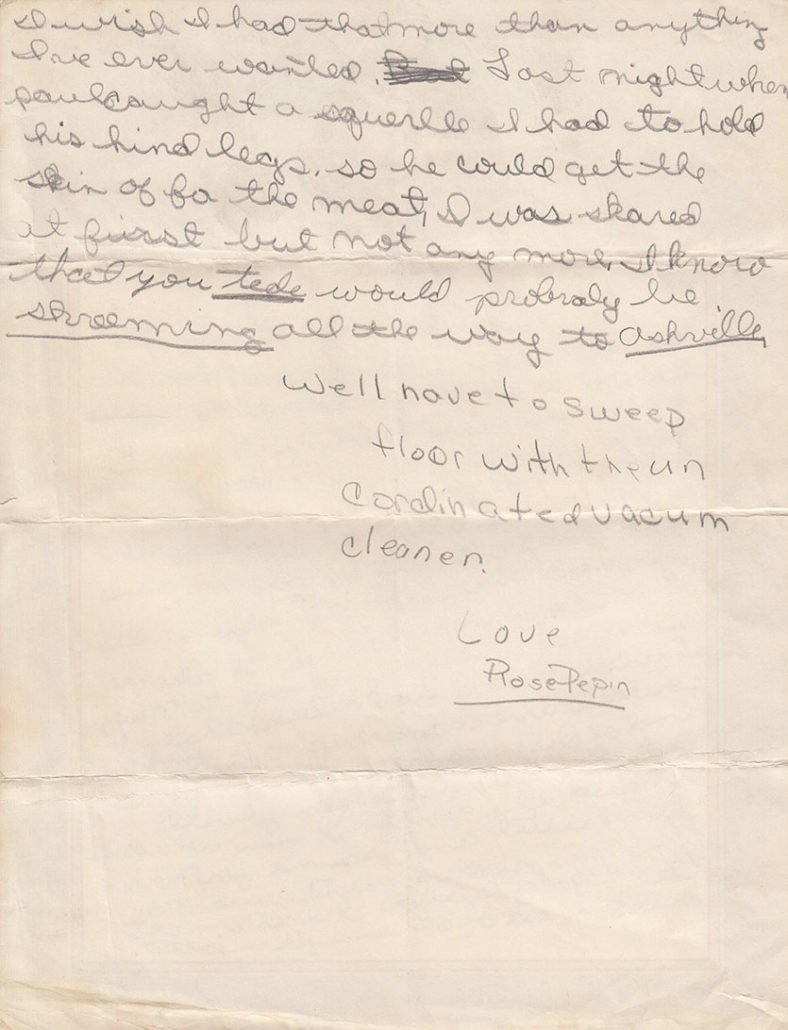 I wish I had that more than anything
I've ever wanted. Last night when
paul caught a squerlle I had to hold
his hind legs, so he could get the
skin of fo the meat, I was skared
at fiirst but not any more, I know
that you tede would probraly be
skreeming all the way to ashville,
Well have to sweep
floor with the un
cordinated vacum
cleaner.
Love
Rose Pepin